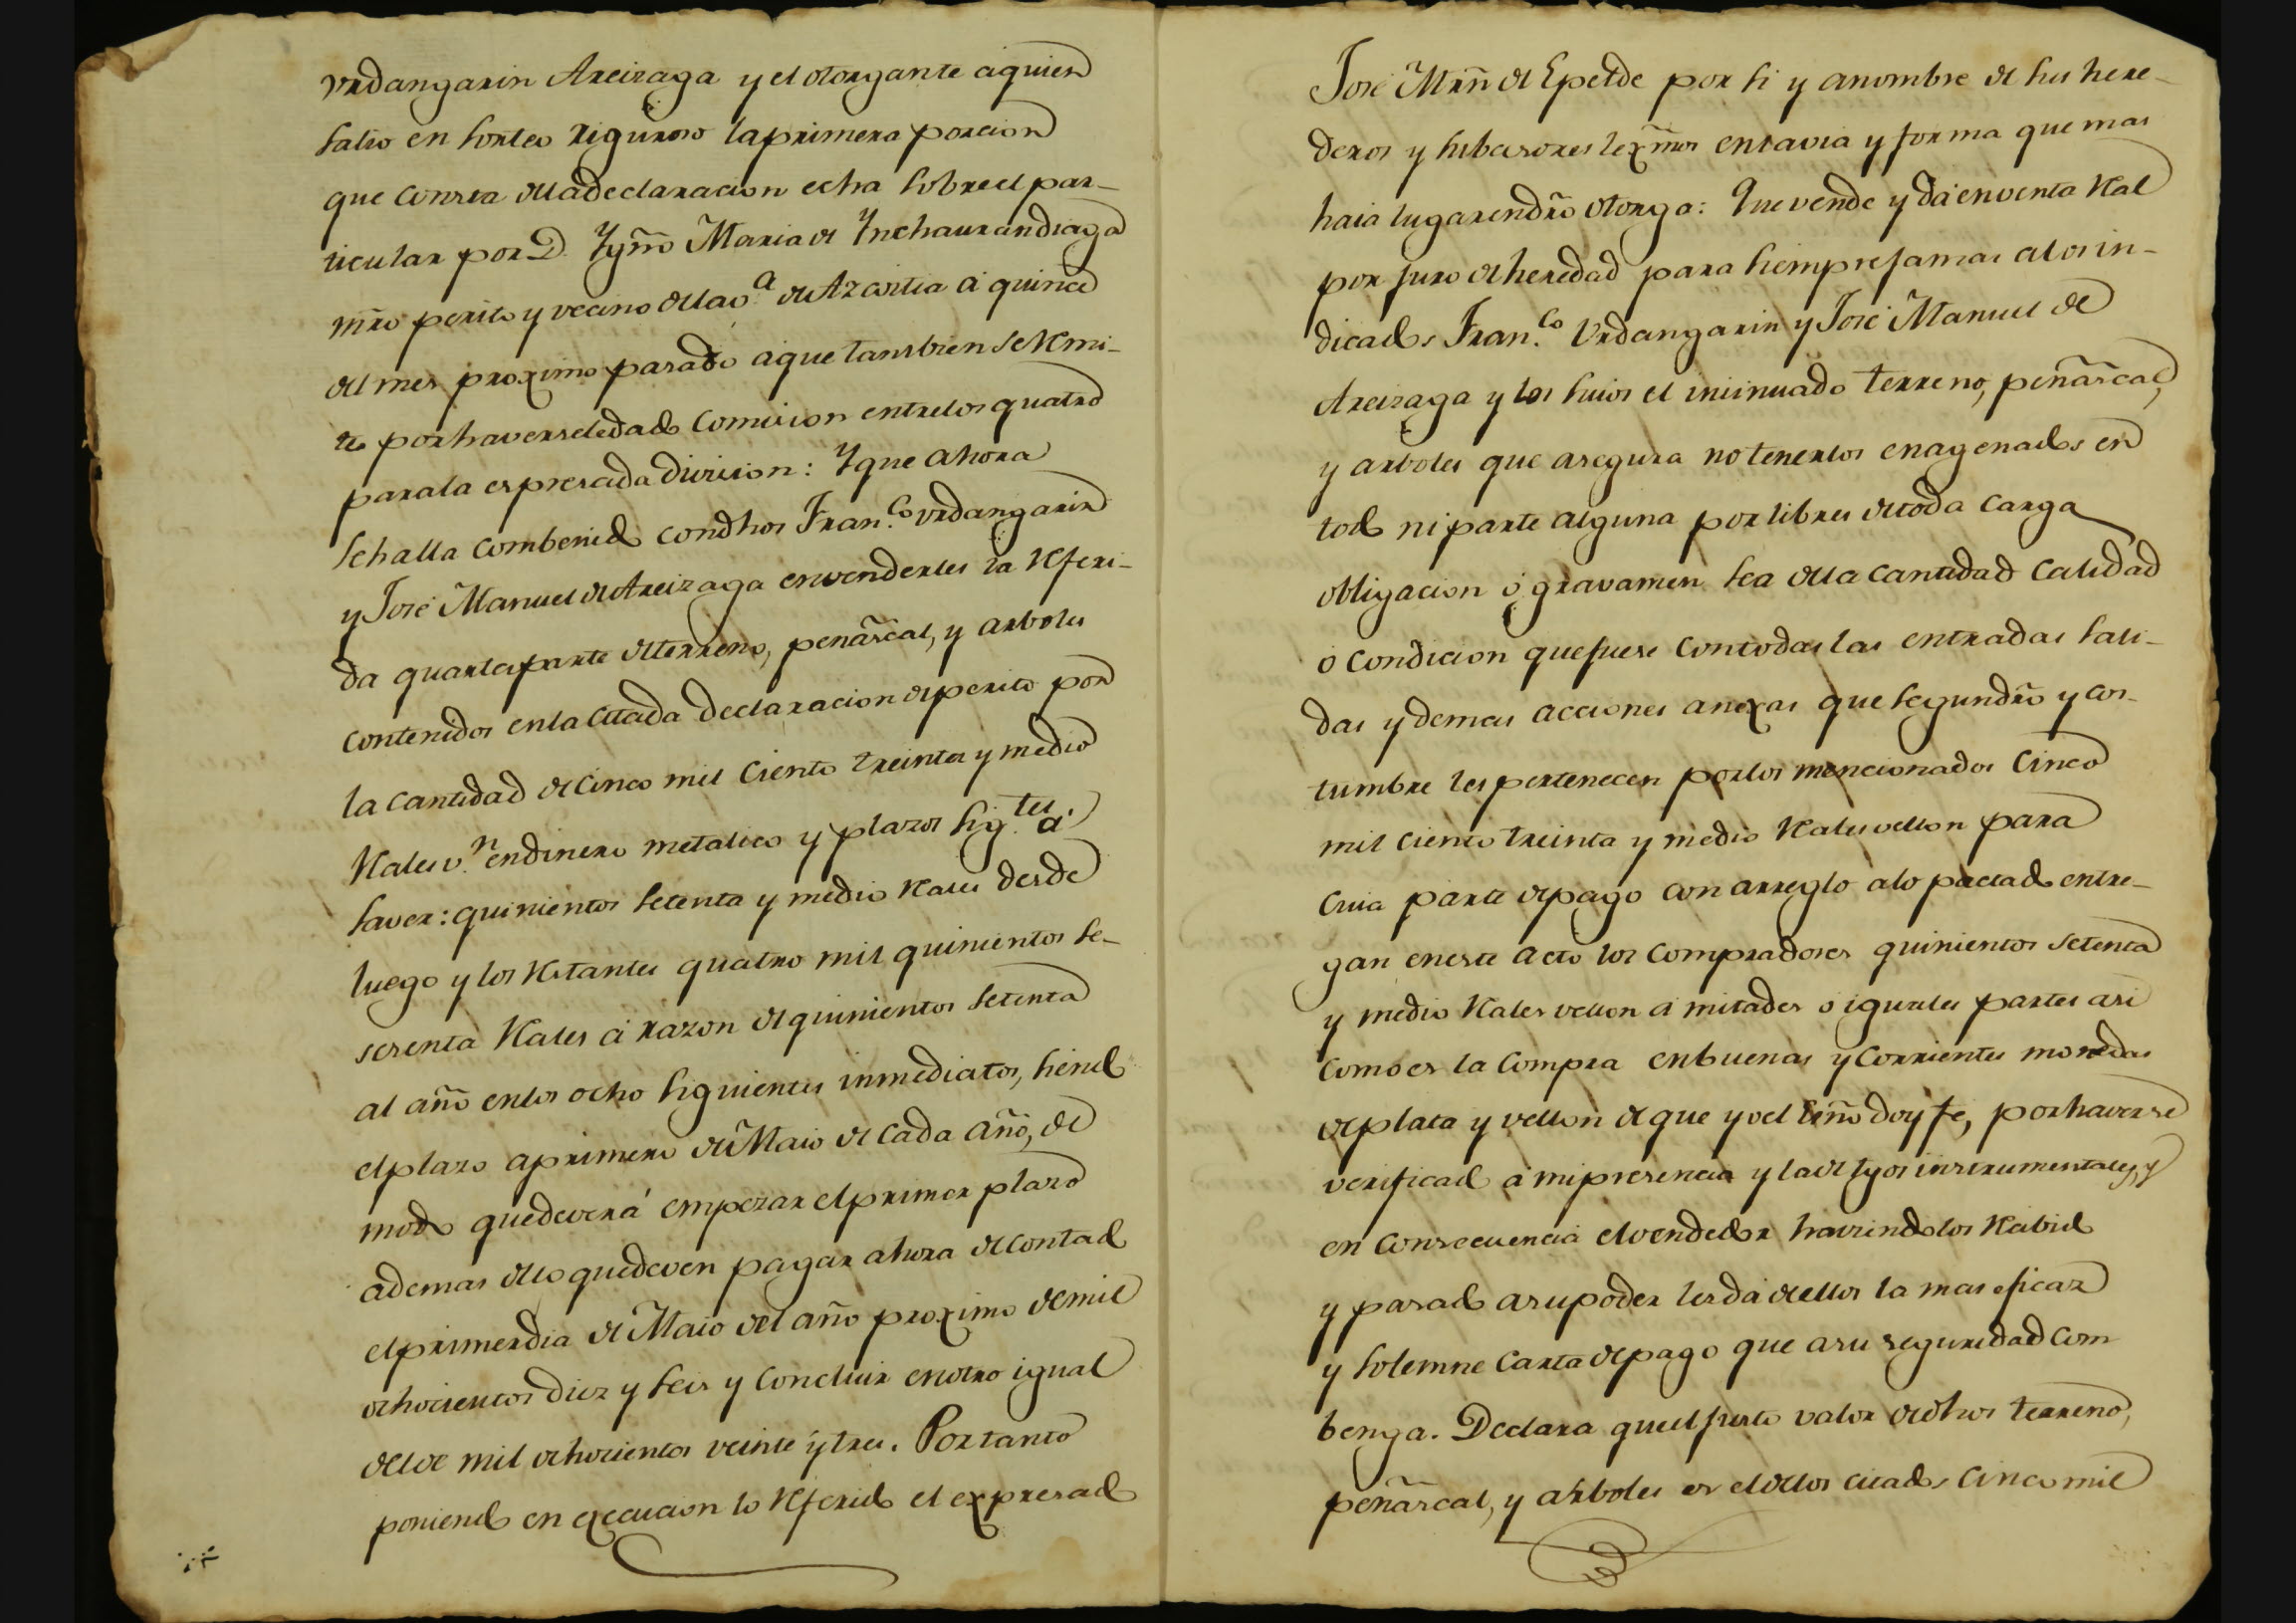 Vrdangarin Areizaga y el otorgante aquien
salio en sorteo riguroso la primera porcion
que consta de la declaracion echa sobre el par-
ticular por D. Ygño Maria de Ynchaurandiaga
mro perito y vecino de la v.ª de Azcoitia á quince
del mes proximo pasado aque tambien se remi-
te por haverseledado comision entre los quatro
para la expresada division: Y que ahora
se halla combenido con dhos Fran.co Vrdangarin
y José Manuel de Areizaga en venderles la referi-
da quarta parte de terreno, peñascal, y arboles
contenidos en la citada declaracion de perito por
la cantidad de cinco mil ciento treinta y medio
Reales v.n en dinero metalico y plazos sig.tes á
saver: quinientos setenta y medio reales desde
luego y los restantes quatro mil quinientos se-
senta Reales á razon de quinientos setenta
al año en los ocho siguientes inmediatos, siendo
el plazo a primero de Maio de cada año, de
modo que deverá empezar el primer plazo
ademas de lo que deven pagar ahora de contado
el primer dia de Maio del año proximo de mil
ochocientos diez y seis y concluir en otro igual
del de mil ochocientos veinte y tres. Portanto
poniendo en execucion lo referido el expresado
José Mrñ de Epelde por si y anombre de sus here-
deros y subcesores lexmos en la via y forma que mas
haia lugar en dro otorga: Que vende y dá en venta Real
por juro de heredad para siempre jamas a los in-
dicados Fran.co Vrdangarin y José Manuel de
Areizaga y los suios el insinuado terreno, peñascal,
y arboles que asegura no tenerlos enagenados en
todo ni parte alguna por libres de toda carga
obligacion ó gravamen sea de la cantidad calidad
o condicion que fuere con todas las entradas sali-
das y demas acciones anexas que segun dro y cos-
tumbre les pertenecen por los mencionados cinco
mil ciento treinta y medio Reales vellon para
cuia parte de pago con arreglo a lo pactado entre-
gan en este acto los compradores quinientos setenta
y medio Reales vellon á mitades o iguales partes asi
como es la compra en buenas y corrientes monedas
de plata y vellon de que yo el Esño doy fe, por haverse
verificado á mi presencia y la de tgos instrumentales, y
en consecuencia el vendedor haviendolos recibido
y pasado a su poder les dá de ellos la mas eficaz
y solemne carta de pago que a su seguridad com
benga. Declara que el justo valor de dhos terreno,
peñascal, y arboles es el de los citados cinco mil